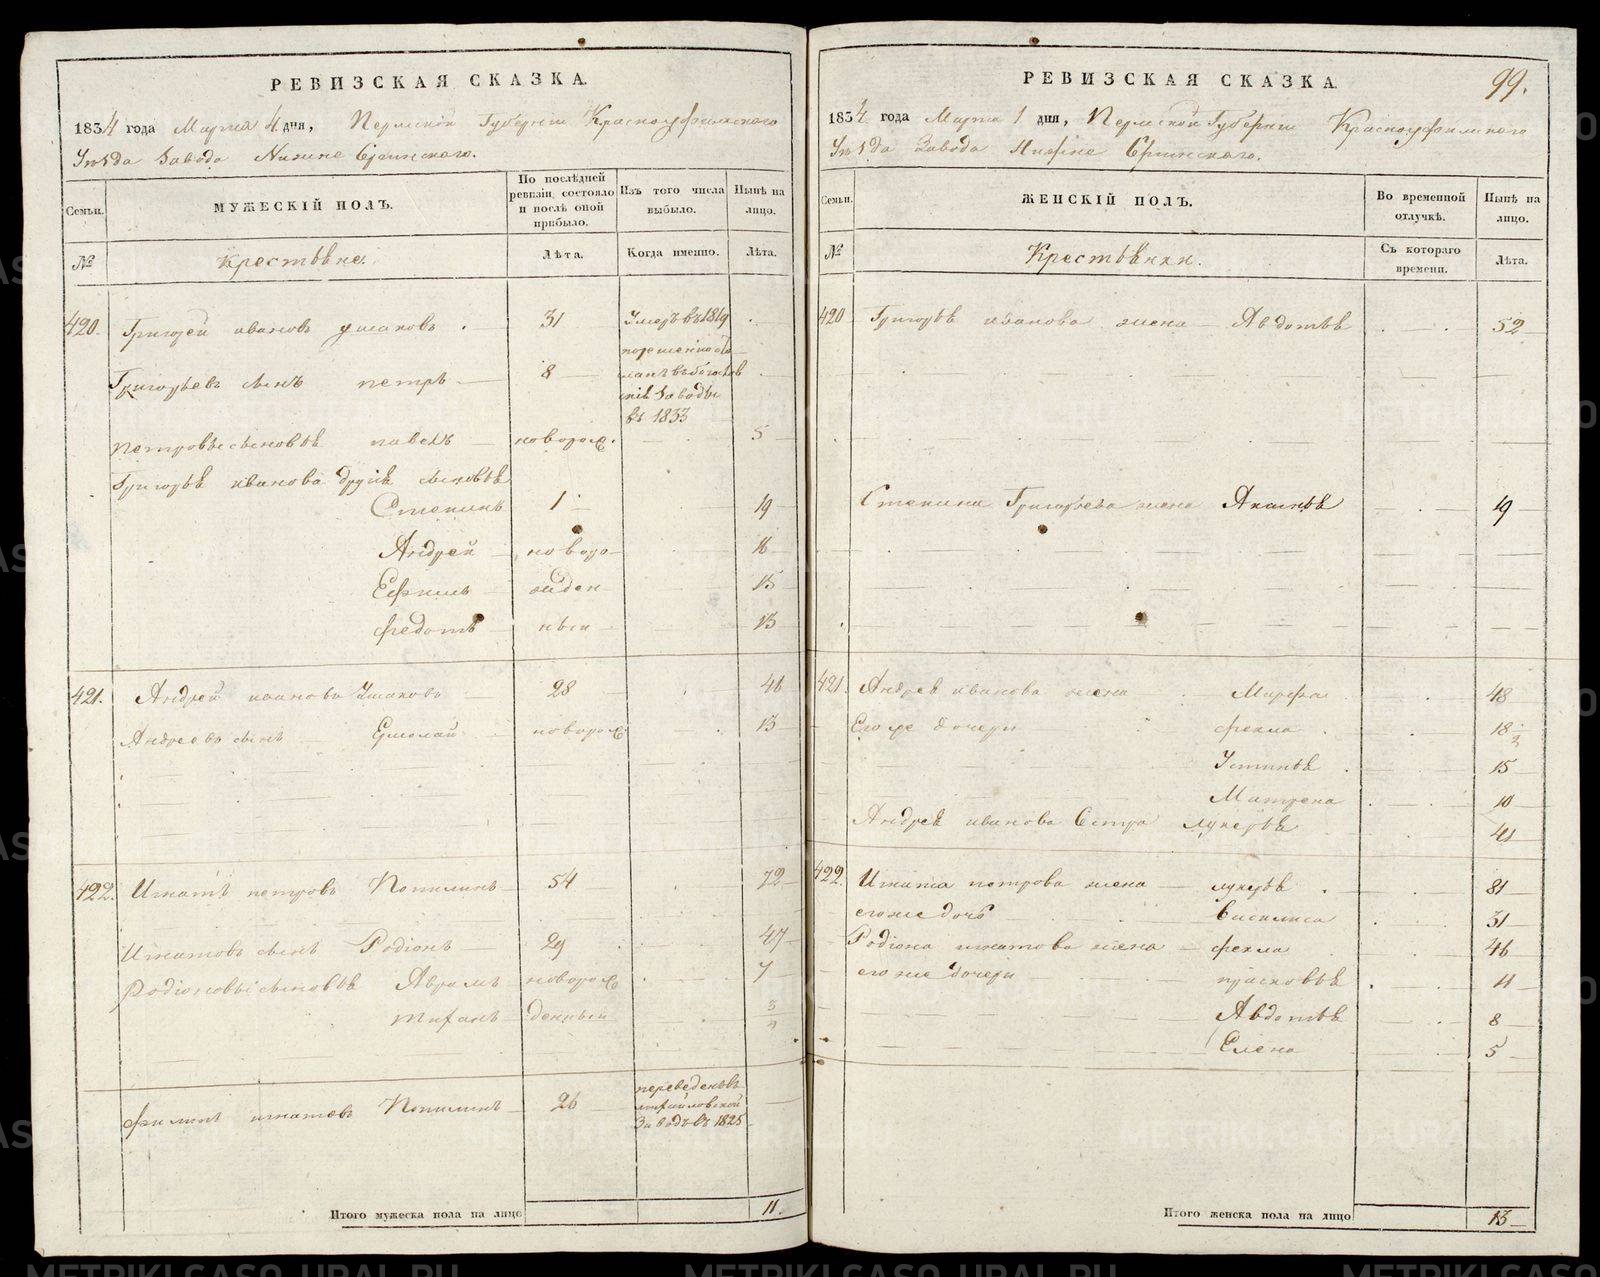 РЕВИЗСКАЯ СКАЗКА.
1834 года Марта 4 дня, Пермской Губерніи Красноуфимскаго
Уѣзда Завода Нижне Сергинскаго.
Семьи.
МУЖЕСКІЙ ПОЛЪ.
По послѣдней ревизіи состояло и послѣ оной прибыло.
Изъ того числа выбыло.
Нынѣ на лицо.
№
Крестьяне.
Лѣта.
Когда именно.
Лѣта.
420. Григорей ивановъ ушаковъ. 31 Умеръ въ 1819
Григорьевъ сынъ петръ 8
заводы
въ 1833
петровъ сыновья павелъ новорож. 5
Григорья иванова другие сыновья
Степанъ 1 19
Андрей новоро 16
Ефимъ жден 15
федотъ ныи 13
421. Андрей ивановъ Ушаковъ 28 46
Андреевъ сынъ Ермолай новорож 13
422. Игнатъ петровъ Попилинъ 54 72
Игнатовъ сынъ Родіонъ 29 47
Родіоновы сыновья Аврамъ новорож 7
денный
филипъ игнатовъ Попилинъ 26 переведенъ въ
михайловской
Заводъ въ 1825
Итого мужеска пола на лицо 11.
РЕВИЗСКАЯ СКАЗКА.
99.
1834 года Марта 1 дня, Пермской Губерніи Красноуфимскаго
Уѣзда Завода Нижне Сергинскаго.
Семьи.
ЖЕНСКІЙ ПОЛЪ.
Во временной отлучкѣ.
Нынѣ на лицо.
№
Крестьянки.
Съ котораго времени.
Лѣта.
420 Григорья иванова жена Авдотья 52
Степана Григорьева жена Аксинья 19
421. Андрея иванова жена Марфа 48
Его же дочери фекла 18
Устинья 15
Матрена 10
Андрея иванова Сестра лукерья 41
422. Игната петрова жена лукерья 81
его же дочь Василиса 31
Родіона игнатова жена фекла 46
его же дочери прасковья 11
Авдотья 8
Елена 5
Итого женска пола на лицо 13
METRIKI.GASO-URAL.RU